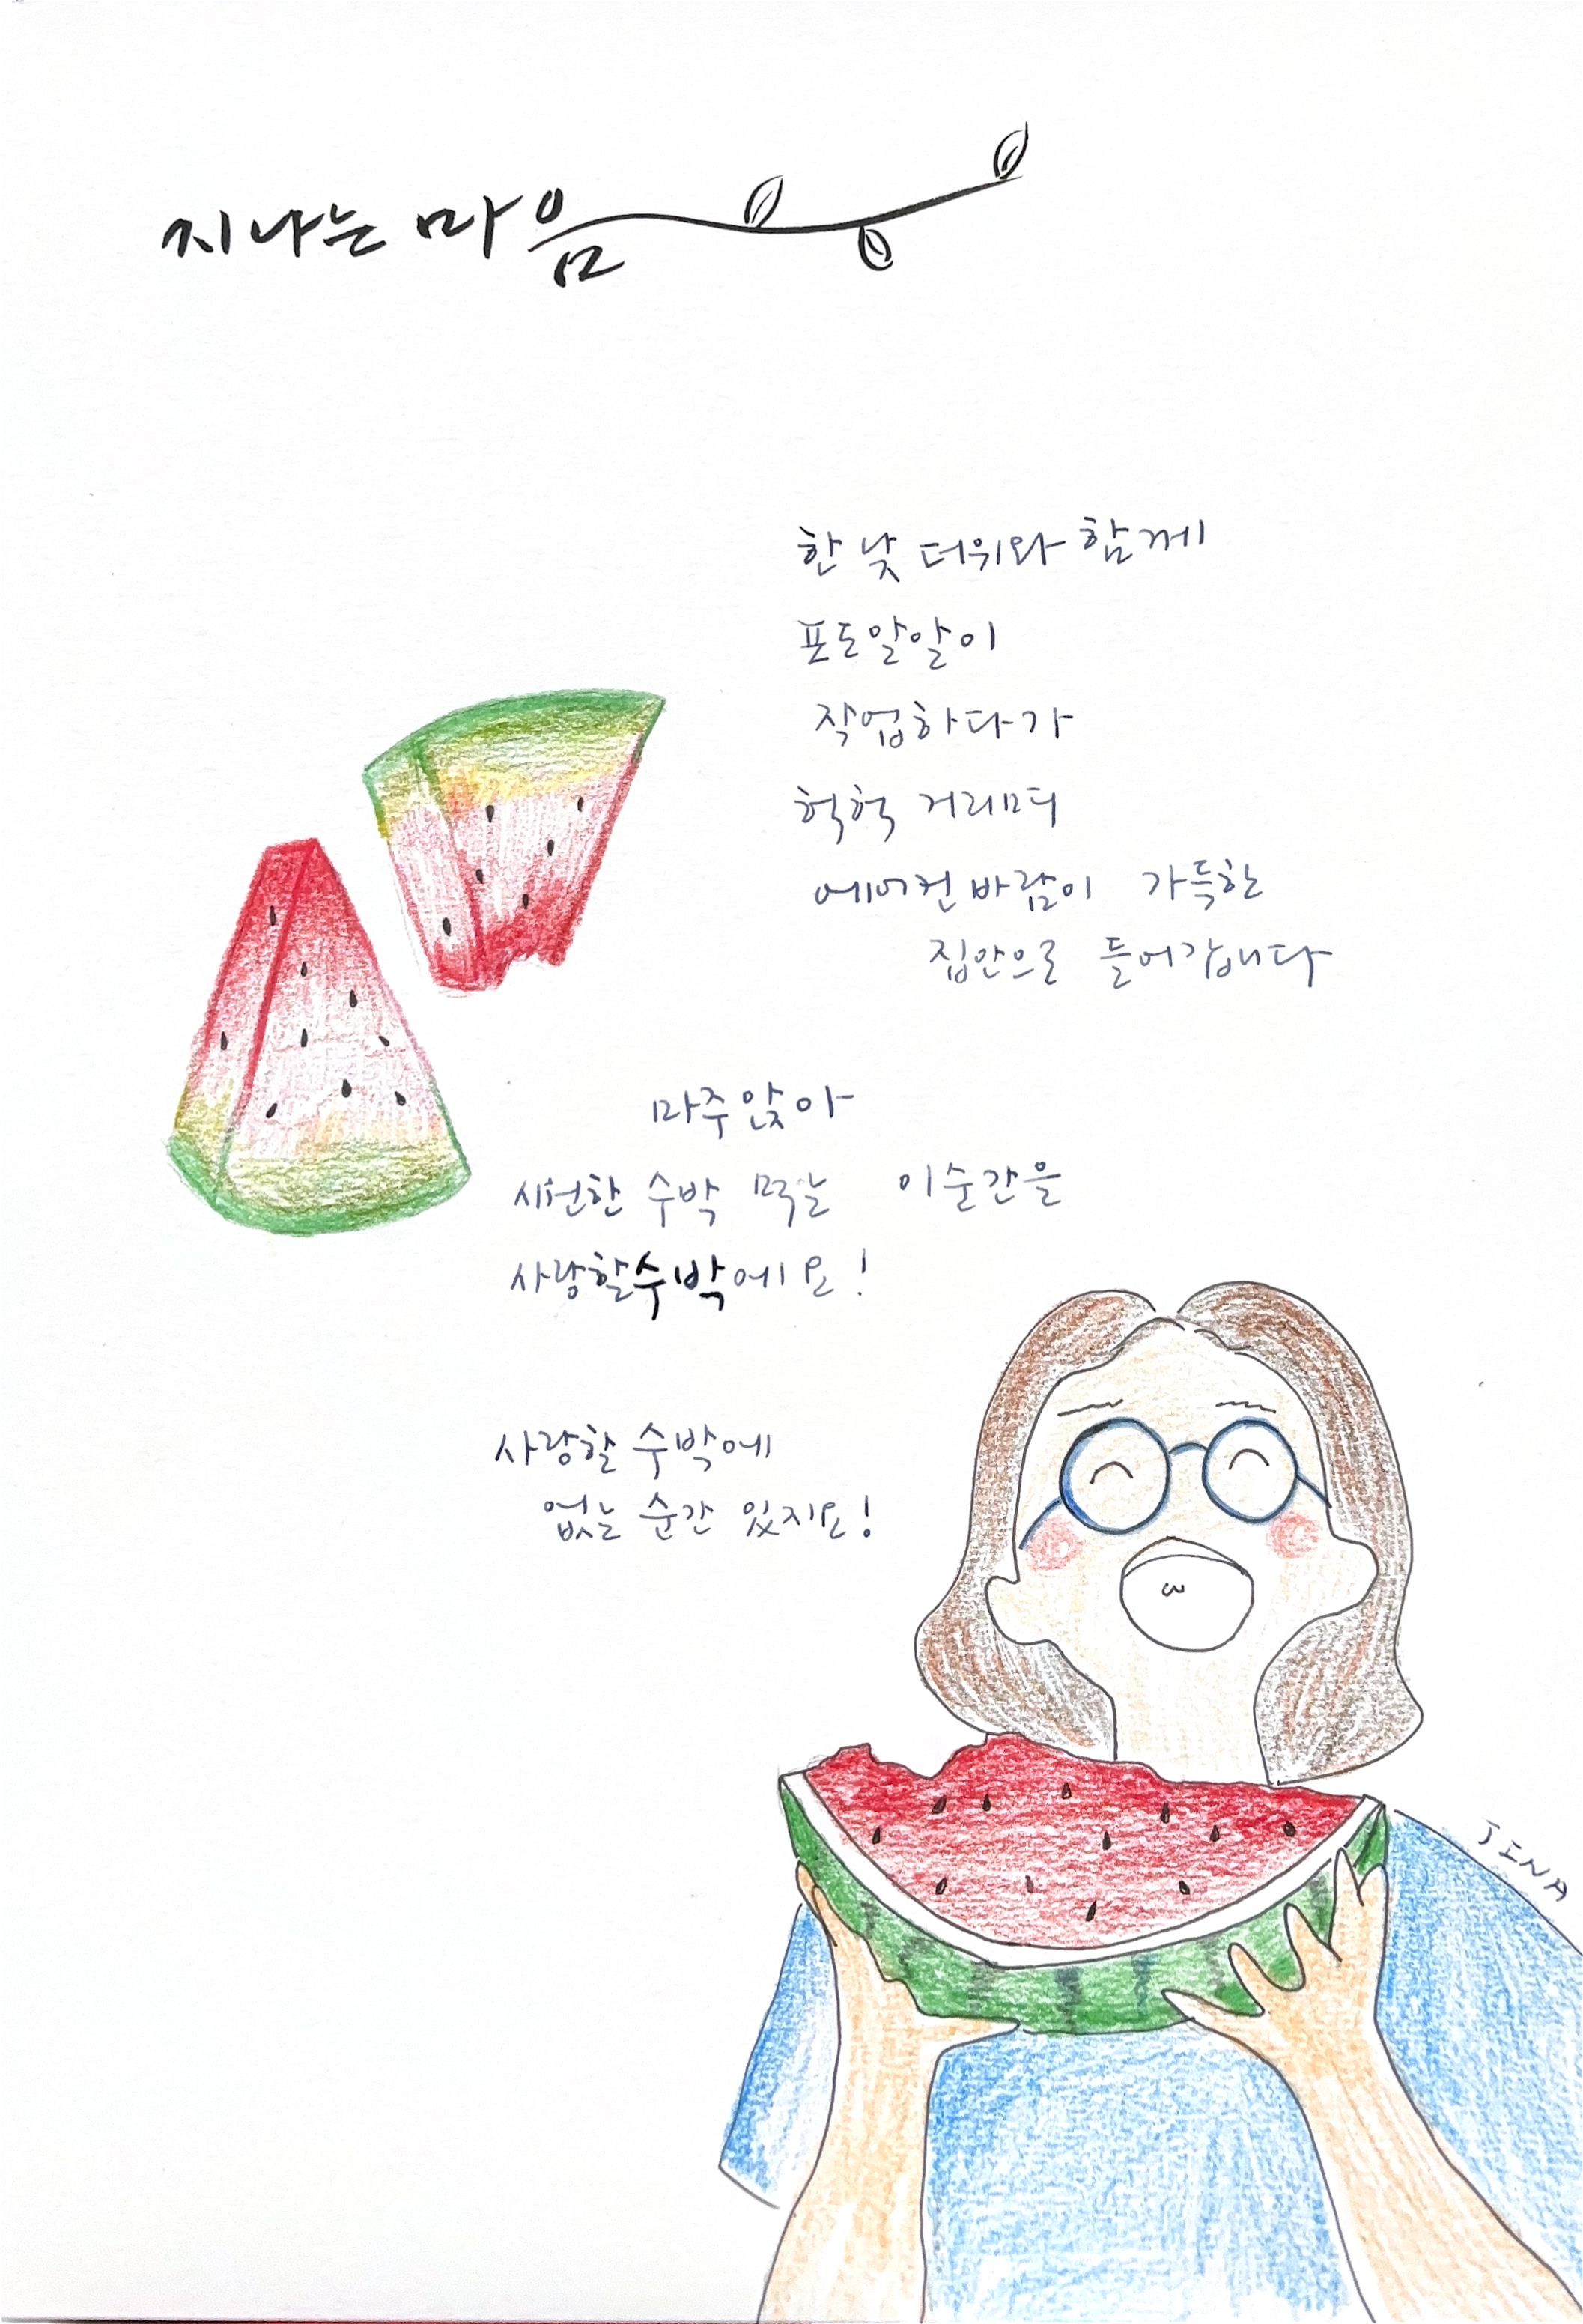 지나는 마음
한낮 더위와 함께
포도알알이
작업하다가
헉헉 거리며
에어컨바람이 가득한
집안으로 들어갑니다
마주앉아
시원한 수박 먹는 이순간을
사랑할수박에요!
사랑할 수박에
없는 순간 있지요!
JINA